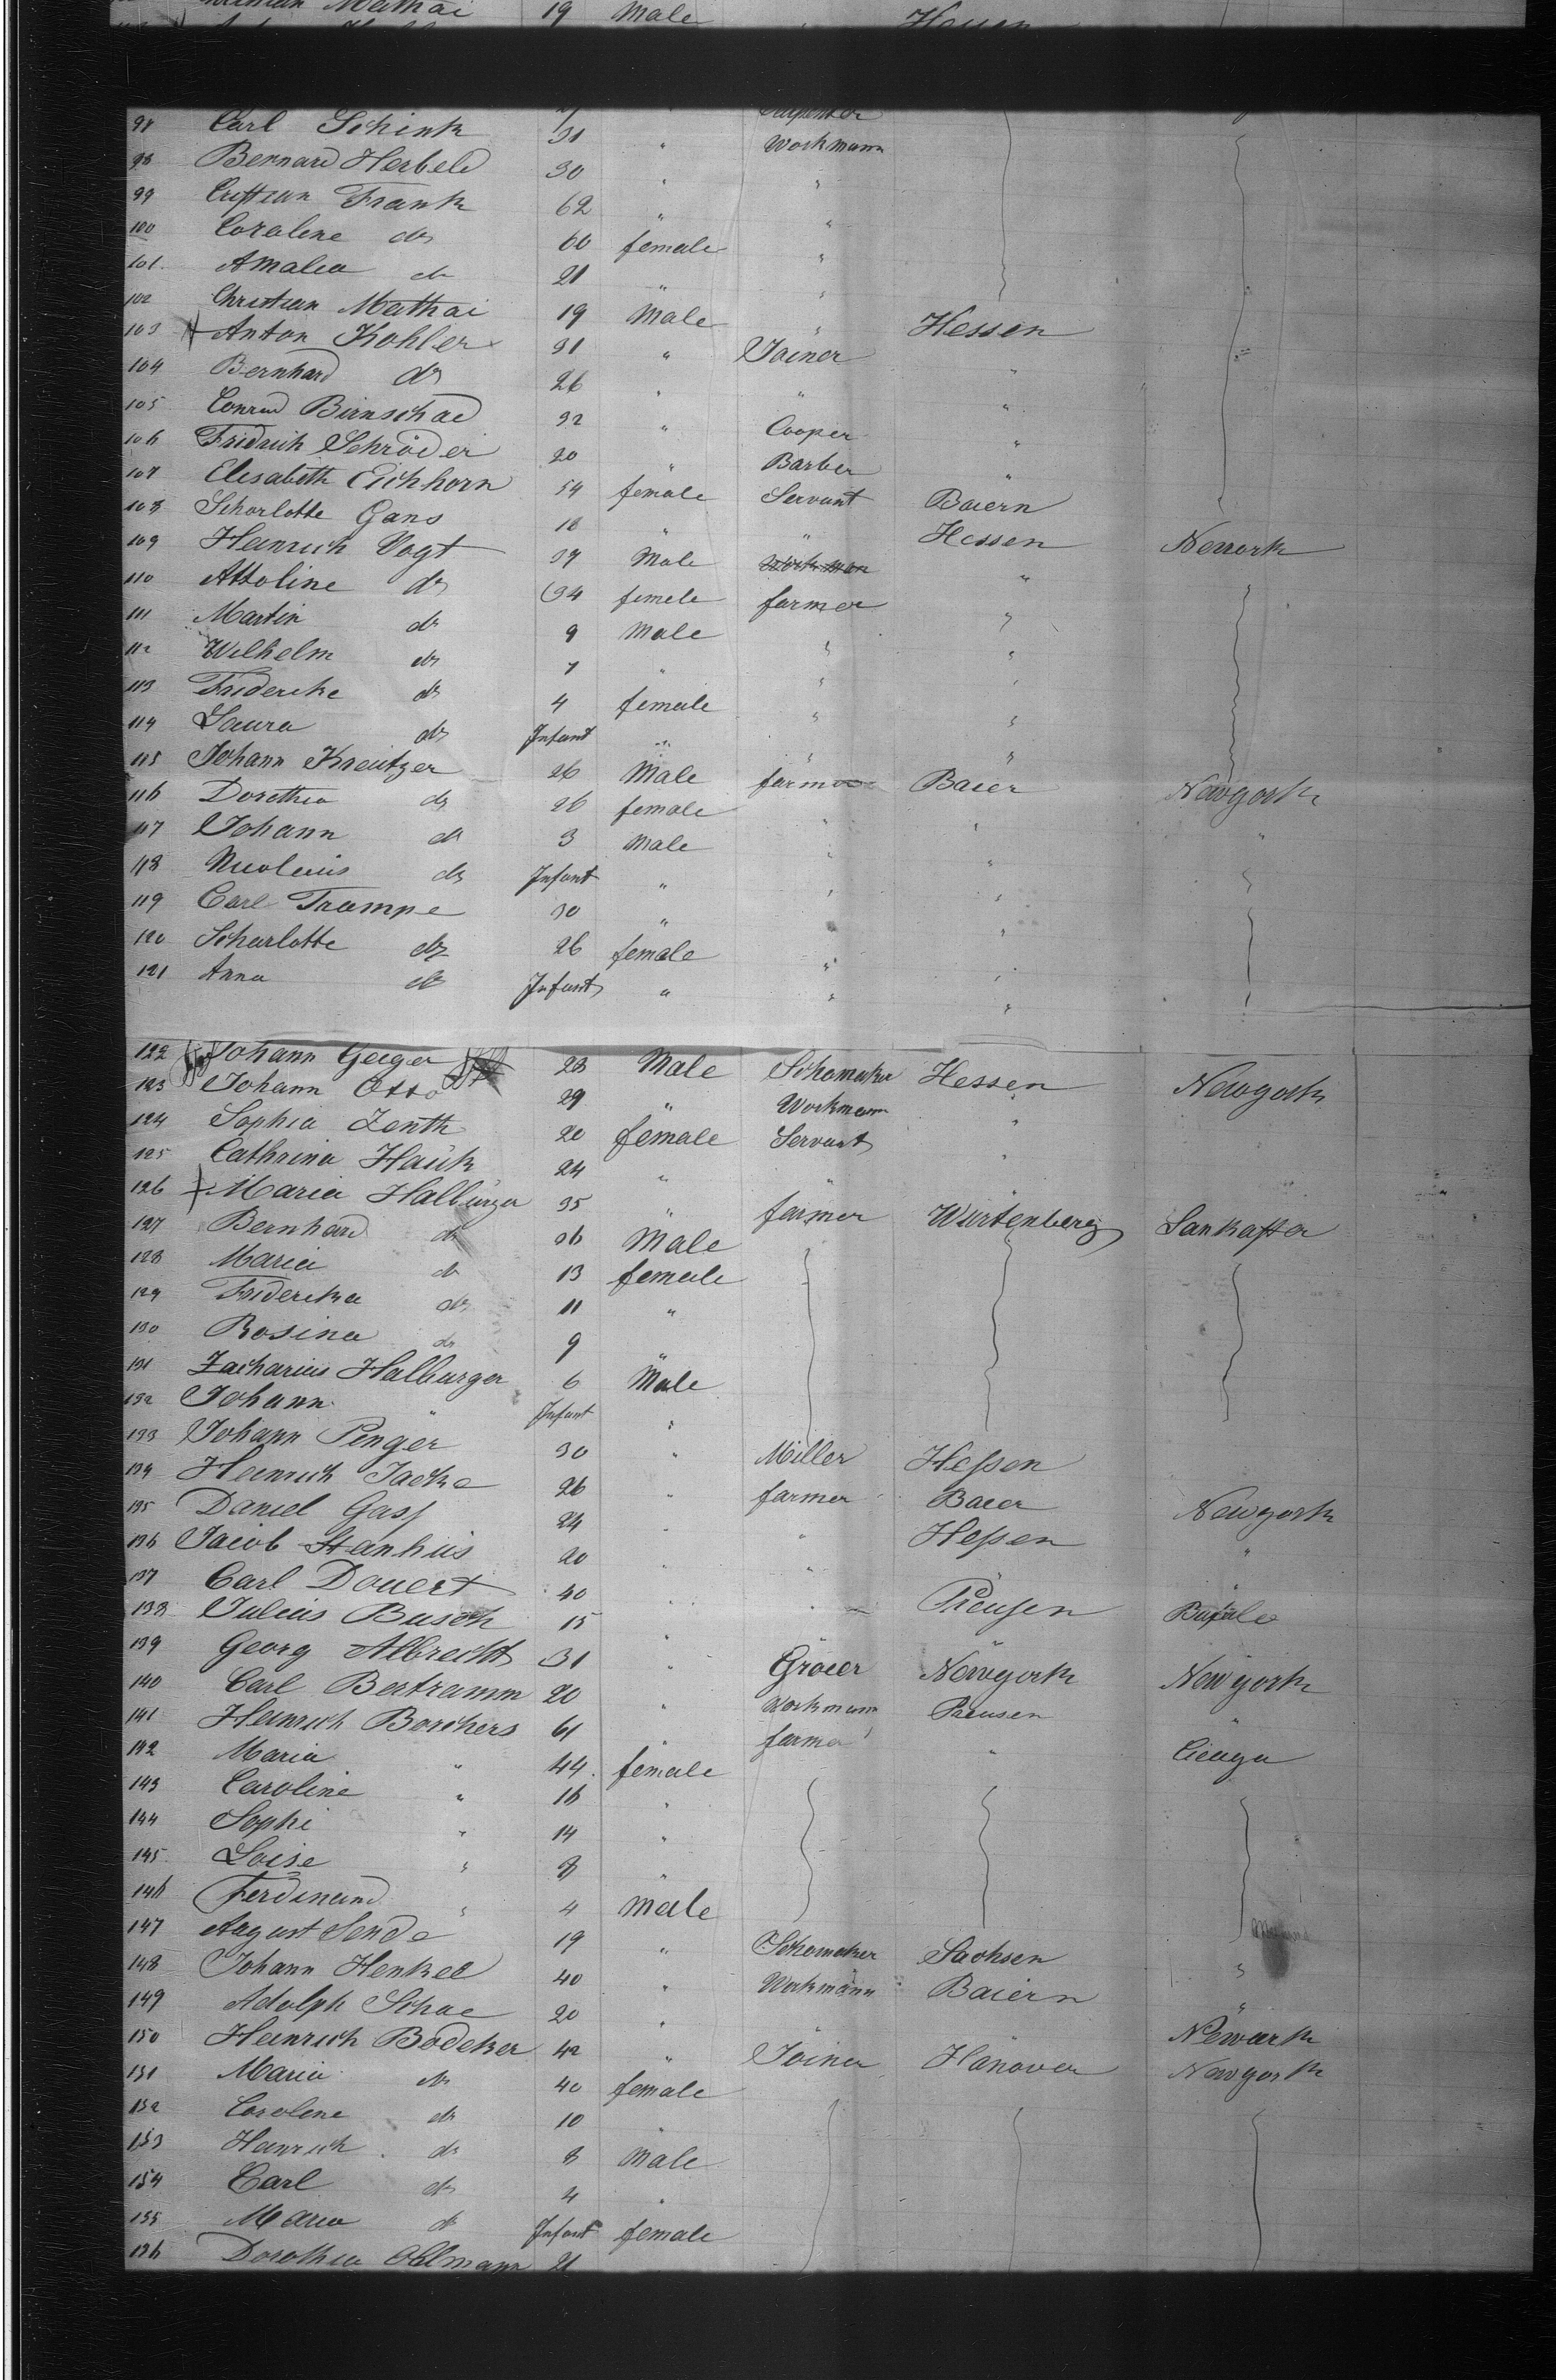 Mathai 19 Male Hessen
Carl Schink 31 " Workmann
98 Bernard Herbeld 30 " "
99 Cristian Frank 62 " "
100 Coraline do 60 female "
101. Amalia do 21 " "
102 Christian Mathai 19 Male " Hessen
103 Anton Kohler 31 " Joiner "
104 Bernhard do 26 " " "
105 Conrad Birnschad 32 " Cooper "
106 Fridrich Schröder 20 " Barber "
107 Elisabeth Eichhorn 54 female Servant Baiern
108 Schorlotte Gans 18 " " Hessen
109 Heinrich Vogt 37 Male Workman " Nework
110 Attoline do 34 femele farmer "
111 Martin do 9 Male " "
112 Wilhelm do 7 " " "
113 Friderike do 4 female " "
114 Laura do Infant " " "
115 Johann Kreutzer 26 Male farmer Baier Newyork
116 Dorethea do 26 female " " "
117 Johann do 3 Male " "
118 Nicolaus do Infant " " "
119 Carl Trampe 30 " " "
120 Scharlotte do 26 female " "
121 Anna do Infant " " "
122 Johann Geiger 28 Male Schomaker Hessen Newyork
123 Johann Otto 29 " Workmann "
124 Sophia Zenth 20 female Servant "
125 Cathrina Hauk 24 " " "
126 Maria Halburger 35 " farmer Würtenberg Lankaster
127 Bernhard do 36 Male
128 Maria do 13 female
129 Friderika do 11 "
130 Rosina do 9 "
131 Zacharius Halburger 6 Male
132 Johann " Infant "
133 Johann Penger 30 " Miller Hessen
134 Heinrich Jacke 26 " farmer Baier Newyork
135 Daniel Gass 24 " " Hessen "
136 Jacob Stanhus 20 " " "
137 Carl Douert 40 " " Preusen Bufalo
138 Julius Busch 15 " " "
139 Georg Albrecht 31 " Grocer Newyork Newyork
140 Carl Bertramm 20 " Workmann Preusen "
141 Heinrich Borchers 61 farmer " Cicaga
142 Maria " 44. female
143 Caroline " 16 "
144 Sophi " 14 "
145 Loise " 8 "
146 Ferdinand " 4 Male
147 August Sende 19 " Schomaker Sachsen "
148 Johann Henkel 40 " Workmann Baiern "
149 Adolph Schae 20 " Newark
150 Heinrich Bödeker 42 " Joiner Hanover Newyork
151 Maria do 40 female
152 Caroline do 10 "
153 Heinrich do 8 Male
154 Carl do 4 "
155 Maria do Infant female
156 Dorothea Ohlmann 21